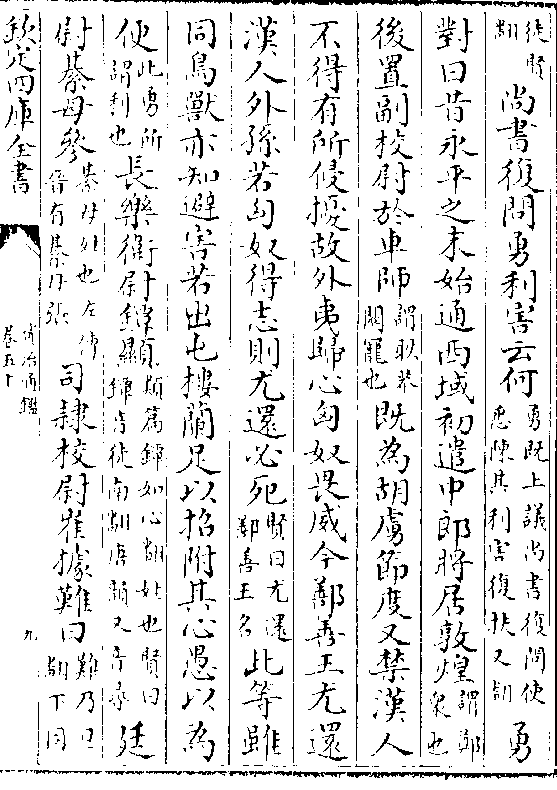 徒賢
翻
尚書復問勇利害云何
勇既上議尚書復問使
悉陳其利害復扶又翻
勇
對曰昔永平之末始通西域初遣中郎將居敦煌
謂鄭
衆也
後置副校尉於車師
謂耿恭
關寵也
既為胡虜節度又禁漢人
不得有所侵擾故外夷歸心匈奴畏威今鄯善王尤還
漢人外孫若匈奴得志則尤還必死
賢曰尤還
鄯善王名
此等雖
同鳥獸亦知避害若出屯樓蘭足以招附其心愚以為
便
此勇所
謂利也
長樂衛尉鐔顯
類篇鐔如心翻姓也賢曰
鐔音徒南翻唐韻又音尋
廷
尉綦母參
綦母姓也左傳
晉有綦母張
司隸校尉崔據難曰
難乃旦
翻下同
欽定四庫全書
資治通鑑
卷五十
九